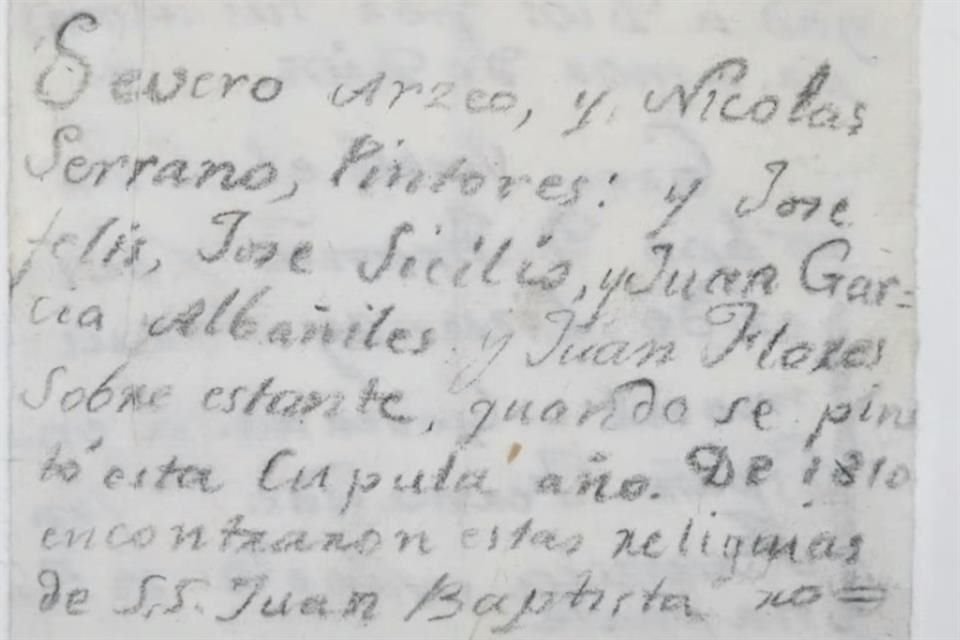 Severo Arzeo, y, Nicolas
Serrano, Pintores: y Jose
felis, Jose Sicilis, y Juan Gar=
cia Albañiles y Juan Flores
Sobre estante, quando se pin
tó esta Cupula año. De 1810
encontraron estas reliquias
de S.S. Juan Baptista ro=